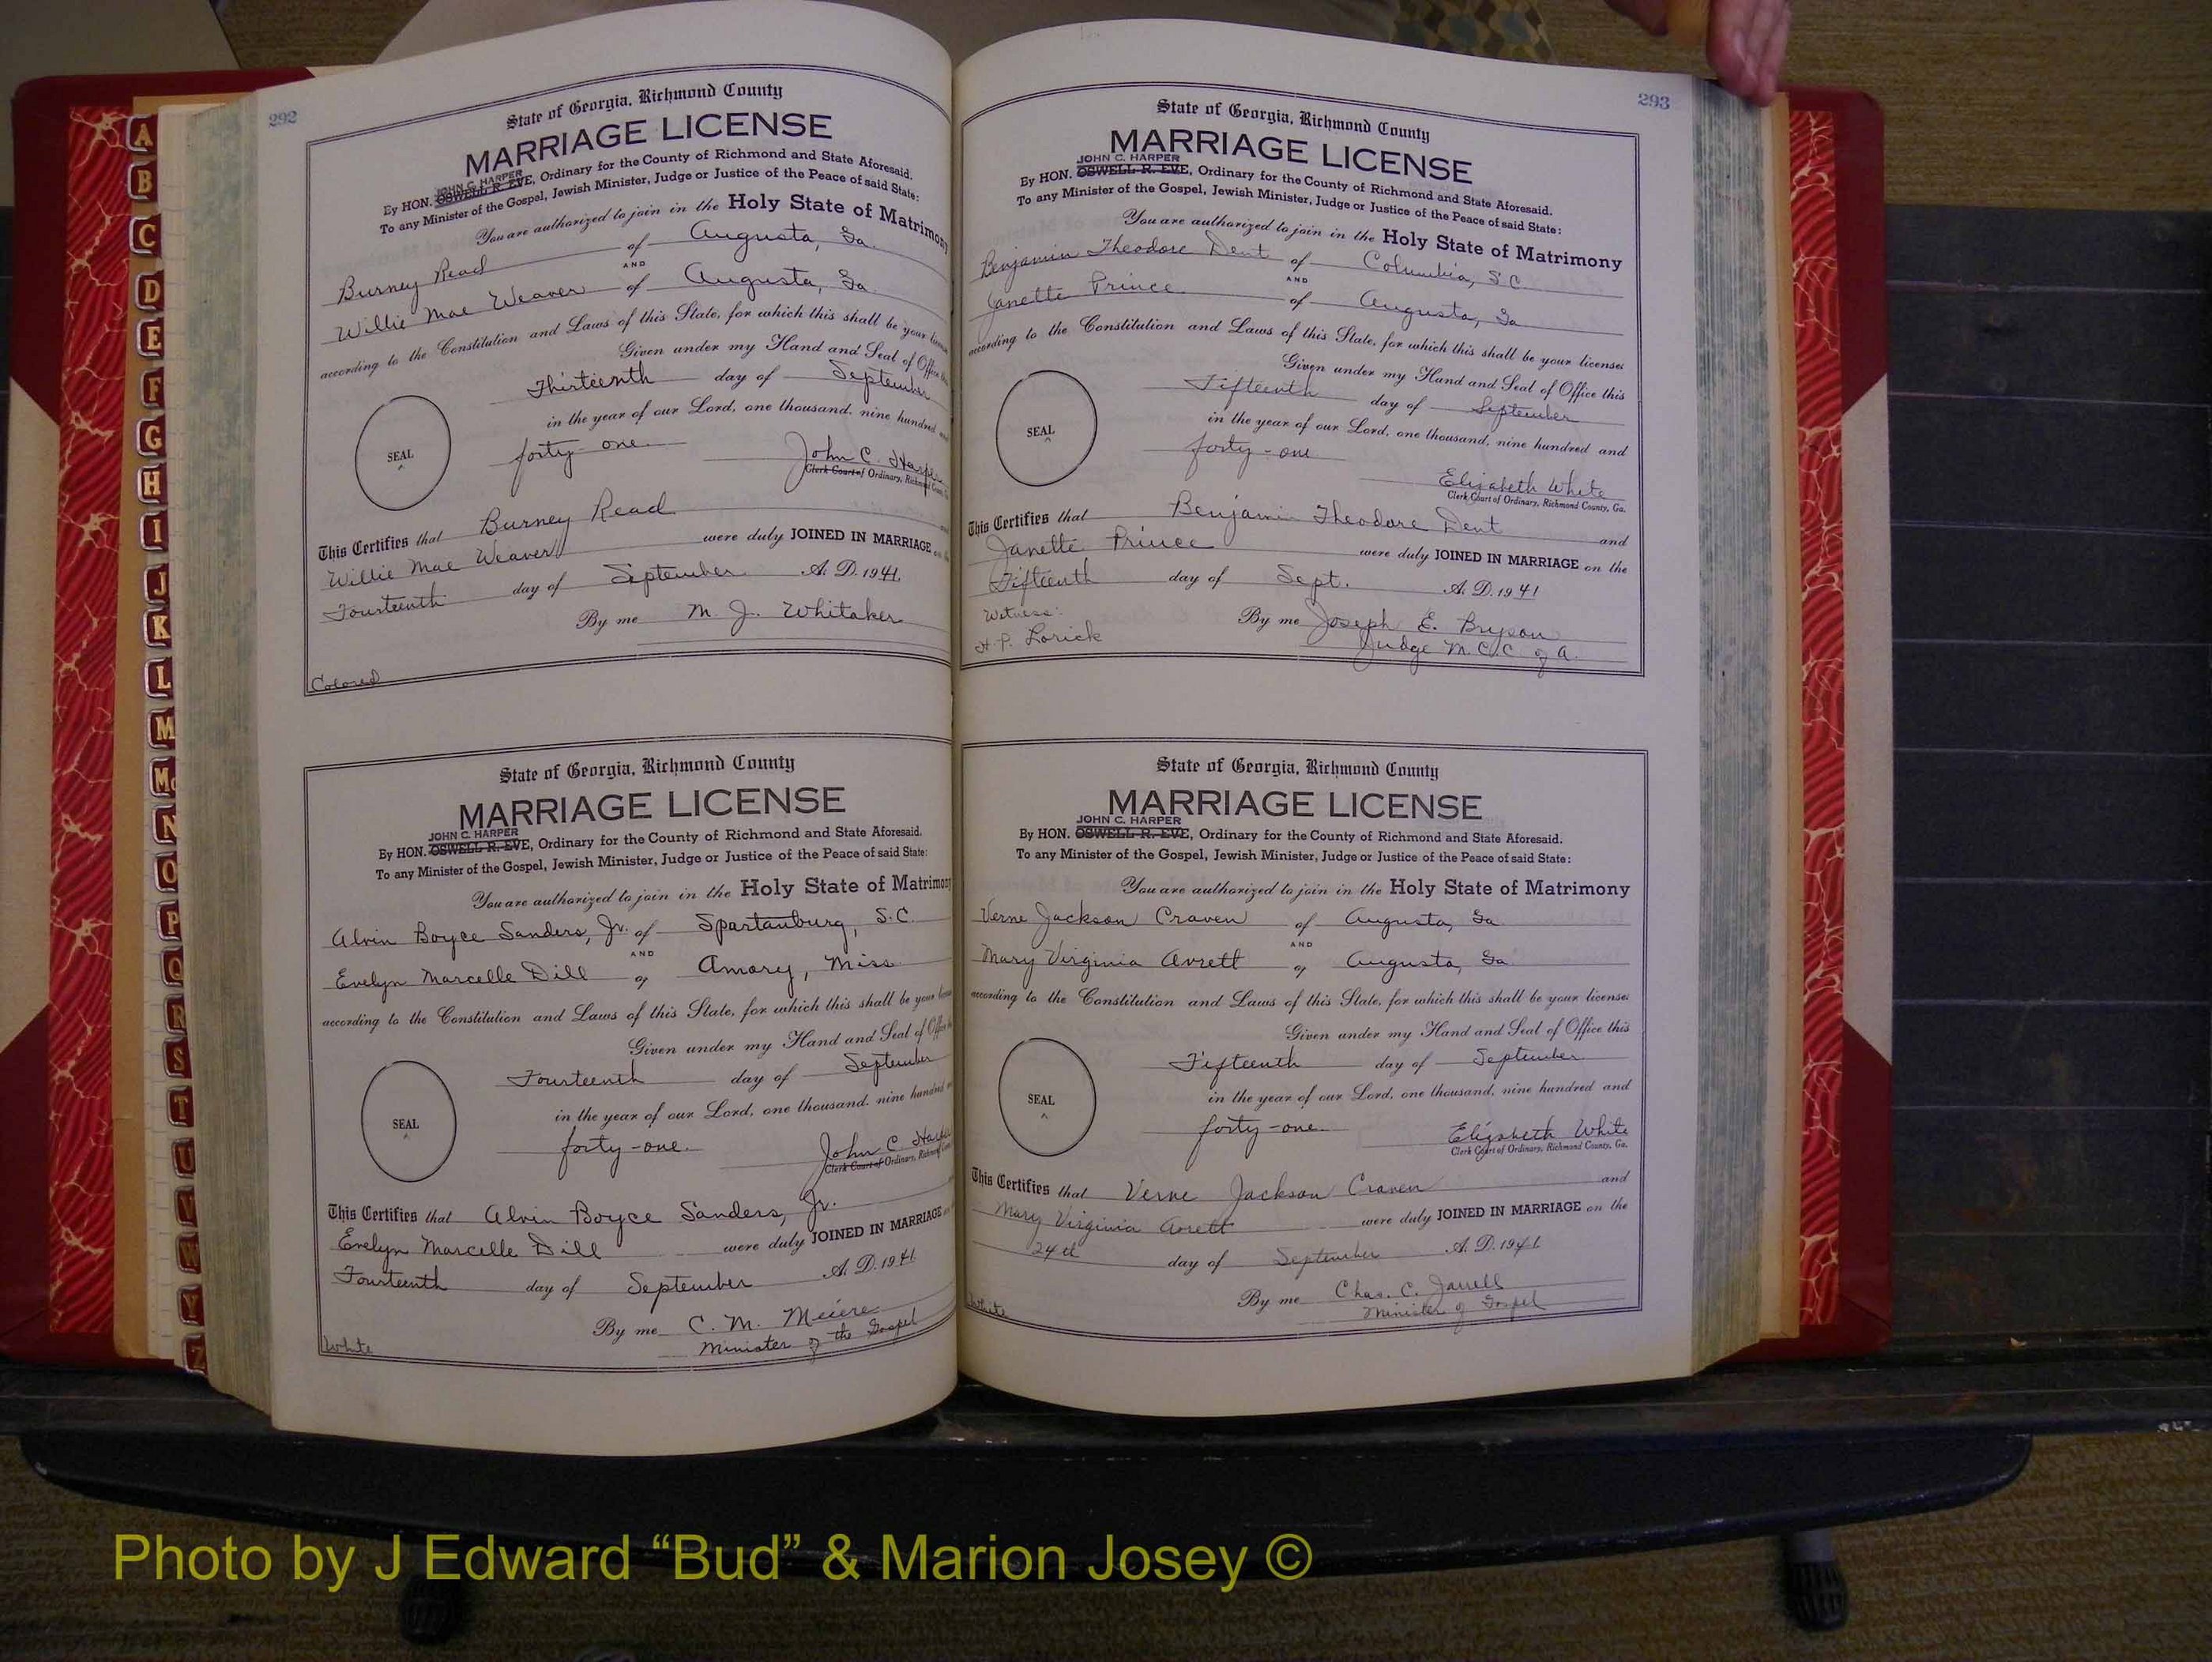 292
State of Georgia, Richmond County
MARRIAGE LICENSE
JOHN C. HARPER
By HON. OSWELL R. EVE, Ordinary for the County of Richmond and State Aforesaid.
To any Minister of the Gospel, Jewish Minister, Judge or Justice of the Peace of said State:
You are authorized to join in the Holy State of Matrimony
Burney Read of Augusta, Ga.
AND
Willie Mae Weaver of Augusta, Ga.
according to the Constitution and Laws of this State, for which this shall be your license
Given under my Hand and Seal of Office
Thirteenth day of September
in the year of our Lord, one thousand, nine hundred and
forty-one
SEAL
John C. Harper
Clerk Court of Ordinary, Richmond County, Ga.
This Certifies that Burney Read
Willie Mae Weaver were duly JOINED IN MARRIAGE on the
Fourteenth day of September A. D. 1941
By me M. J. Whitaker
Colored
State of Georgia, Richmond County
MARRIAGE LICENSE
JOHN C. HARPER
By HON. OSWELL R. EVE, Ordinary for the County of Richmond and State Aforesaid.
To any Minister of the Gospel, Jewish Minister, Judge or Justice of the Peace of said State:
You are authorized to join in the Holy State of Matrimony
Alvin Boyce Sanders, Jr. of Spartanburg, S.C.
AND
Evelyn Marcelle Dill of Amory, Miss.
according to the Constitution and Laws of this State, for which this shall be your license
Given under my Hand and Seal of Office
Fourteenth day of September
in the year of our Lord, one thousand, nine hundred
forty-one.
SEAL
John C Harper
Clerk Court of Ordinary, Richmond County
This Certifies that Alvin Boyce Sanders, Jr.
Evelyn Marcelle Dill were duly JOINED IN MARRIAGE
Fourteenth day of September A. D. 1941
By me C. M. Meiere
Minister of the Gospel
White
293
State of Georgia, Richmond County
MARRIAGE LICENSE
JOHN C. HARPER
By HON. OSWELL R. EVE, Ordinary for the County of Richmond and State Aforesaid.
To any Minister of the Gospel, Jewish Minister, Judge or Justice of the Peace of said State:
You are authorized to join in the Holy State of Matrimony
Benjamin Theodore Dent of Columbia, S.C.
AND
Janette Prince of Augusta, Ga
according to the Constitution and Laws of this State, for which this shall be your license:
Given under my Hand and Seal of Office this
Fifteenth day of September
in the year of our Lord, one thousand, nine hundred and
forty-one
SEAL
Elizabeth White
Clerk Court of Ordinary, Richmond County, Ga.
This Certifies that Benjamin Theodore Dent and
Janette Prince were duly JOINED IN MARRIAGE on the
Fifteenth day of Sept. A. D. 1941
Witness:
H. P. Lorick
By me Joseph E. Bryson
Judge M.C.C. of A.
State of Georgia, Richmond County
MARRIAGE LICENSE
JOHN C. HARPER
By HON. OSWELL R. EVE, Ordinary for the County of Richmond and State Aforesaid.
To any Minister of the Gospel, Jewish Minister, Judge or Justice of the Peace of said State:
You are authorized to join in the Holy State of Matrimony
Verne Jackson Craven of Augusta, Ga
AND
Mary Virginia Avrett of Augusta, Ga
according to the Constitution and Laws of this State, for which this shall be your license:
Given under my Hand and Seal of Office this
Fifteenth day of September
in the year of our Lord, one thousand, nine hundred and
forty-one.
SEAL
Elizabeth White
Clerk Court of Ordinary, Richmond County, Ga.
This Certifies that Verne Jackson Craven and
Mary Virginia Avrett were duly JOINED IN MARRIAGE on the
24th day of September A. D. 1941
By me Chas. C. Jarrell
Minister of Gospel
White
A
B
C
D
E
F
G
H
I
J
K
L
M
Mc
N
O
P
Q
R
S
T
U
V
W
Y
Z
Photo by J Edward “Bud” & Marion Josey ©